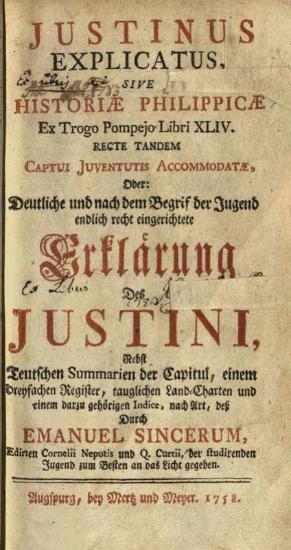 JUSTINUS
EXPLICATUS.
Ex Libris
SIVE
HISTORIÆ PHILIPPICÆ
Ex Trogo Pompejo Libri XLIV.
RECTE TANDEM
CAPTUI JUVENTUTIS ACCOMMODATÆ,
Oder:
Deutliche und nach dem Begrif der Jugend
endlich recht eingerichtete
Erklärung
Ex Libris
Deß
JUSTINI,
Nebst
Teutschen Summarien der Capitul, einem
dreyfachen Register, tauglichen Land-Charten und
einem darzu gehörigen Indice, nach Art, deß
Durch
EMANUEL SINCERUM,
Ædirten Cornelii Nepotis und Q. Curtii, der studirenden
Jugend zum Besten an das Licht gegeben.
Augspurg, bey Mertz und Meyer. 1758.